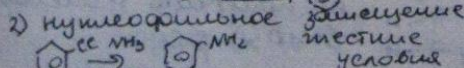 2) нуклеофильное замещение
Cl NH3 → NH2 жесткие
условия